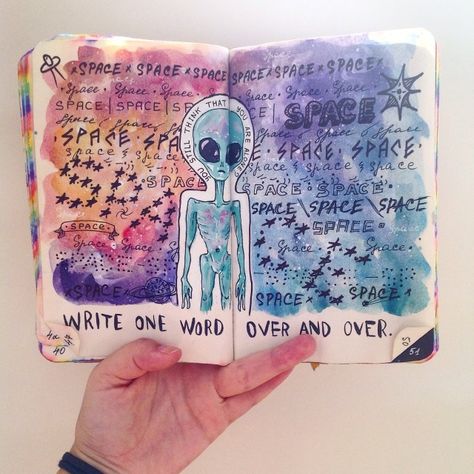 ×SPACE × SPACE × SPACE
Space • Space • Space •
SPACE | SPACE | SP
Space ( Space (
SPACE SPACE
Space Space
SPACE
SPACE
Space Space
SPACE
YOU STILL THINK THAT YOU ARE ALONE?
SPACE × SPACE × SPACE ×
Space • Space • Space
SPACE
Space
SPACE SPACE
Space Space Space
SPACE SPACE
SPACE \ SPACE \ SPACE
SPACE
Space Space
SPACE SPACE
WRITE ONE WORD OVER AND OVER.
40
51